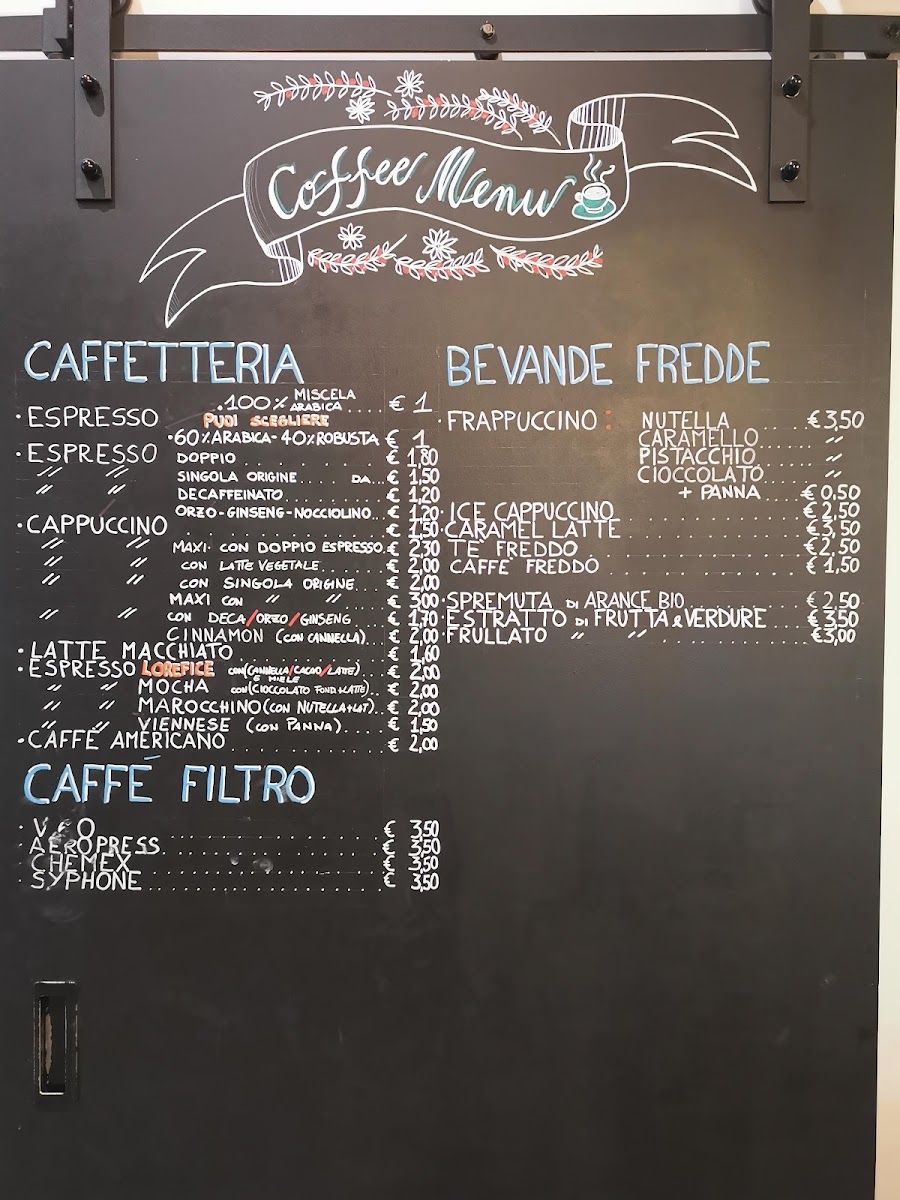 Coffee Menu
CAFFETTERIA
·ESPRESSO .100% MISCELA ARABICA.... € 1
PUOI SCEGLIERE
·60% ARABICA - 40% ROBUSTA € 1
·ESPRESSO DOPPIO............ € 1,80
〃 〃 SINGOLA ORIGINE ... DA... € 1,50
〃 〃 DECAFFEINATO............ € 1,20
ORZO - GINSENG - NOCCIOLINO... € 1,20
·CAPPUCCINO............ € 1,50
〃 〃 MAXI CON DOPPIO ESPRESSO € 2,30
〃 〃 CON LATTE VEGETALE...... € 2,00
〃 〃 CON SINGOLA ORIGINE... € 2,00
MAXI CON 〃 〃 € 3,00
〃 〃 CON DECA/ORZO/GINSENG € 1,70
CINNAMON (CON CANNELLA).. € 2,00
·LATTE MACCHIATO............ € 1,60
·ESPRESSO LOREFICE CON (CANNELLA/CACAO/LATTE) E MIELE € 2,00
〃 〃 MOCHA CON (CIOCCOLATO FOND.+LATTE).. € 2,00
〃 〃 MAROCCHINO (CON NUTELLA+LAT).. € 2,00
〃 〃 VIENNESE (CON PANNA)..... € 1,50
·CAFFÉ AMERICANO............ € 2,00
CAFFÉ FILTRO
· V60............ € 3,50
· AEROPRESS............ € 3,50
· CHEMEX............ € 3,50
· SYPHONE............ € 3,50
BEVANDE FREDDE
·FRAPPUCCINO : NUTELLA...... €3,50
CARAMELLO...... 〃
PISTACCHIO..... 〃
CIOCCOLATO..... 〃
+ PANNA..... €0,50
·ICE CAPPUCCINO............ €2,50
·CARAMEL LATTE............ €3,50
·TE FREDDO............ €2,50
·CAFFE FREDDO............ €1,50
·SPREMUTA DI ARANCE BIO............ €2,50
·ESTRATTO DI FRUTTA & VERDURE...... €3,50
·FRULLATO 〃 〃 ............ €3,00